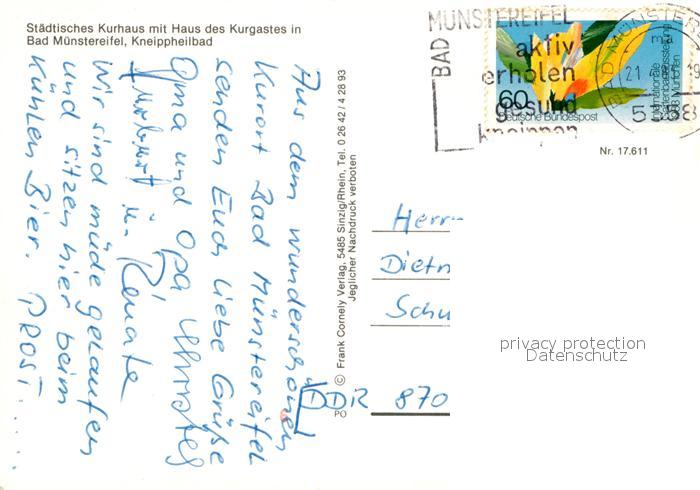 Städtisches Kurhaus mit Haus des Kurgastes in
Bad Münstereifel, Kneippheilbad
Aus dem wunderschönen
Kurort Bad Münstereifel
senden Euch liebe Grüße
Oma und Opa
u. Renate
Wir sind müde gelaufen
und sitzen hier beim
kühlen Bier. PROST.......
© Frank Cornely Verlag, 5485 Sinzig/Rhein, Tel. 0 26 42 / 4 28 93
Jeglicher Nachdruck verboten
BAD
MÜNSTEREIFEL
aktiv
erholen
gesund
kneippen
60
Deutsche Bundespost
Internationale
Gartenbauausstellung
BAD MÜNSTER
21.4.
5358
Nr. 17.611
Herr
Dietm
Schu
DDR 870
PO
privacy protection
Datenschutz